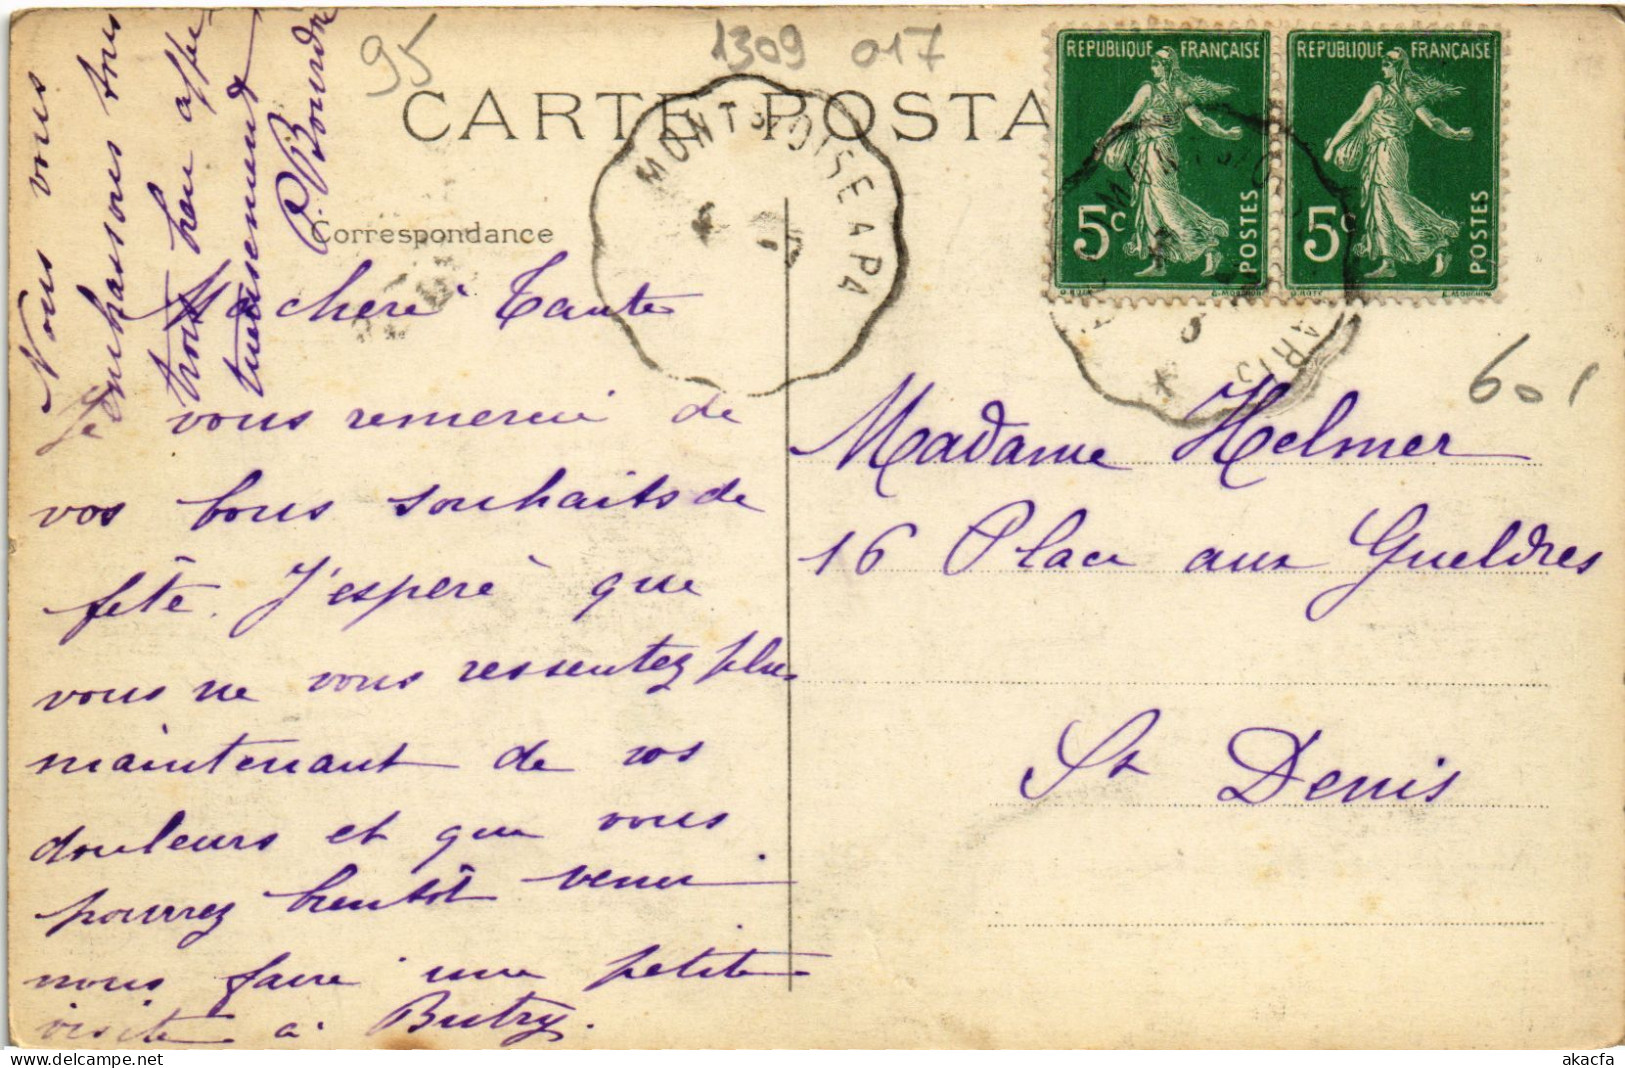 95
1309 017
CARTE POSTA
Correspondance
MONTSOULT OISE A PA
REPUBLIQUE FRANÇAISE
5c POSTES
REPUBLIQUE FRANÇAISE
5c POSTES
PARIS
601
Ma chère Tante
Je vous remercie de
vos bons souhaits de
fête. J'espère que
vous ne vous ressentez plus
maintenant de vos
douleurs et que vous
pourrez bientôt venir
nous faire une petite
visite à Butry.
Nous vous
embrassons tous
trois bien affec
tueusement
P. Bourdre
Madame Helmer
16 Place aux Gueldres
St Denis
delcampe.net
akacfa